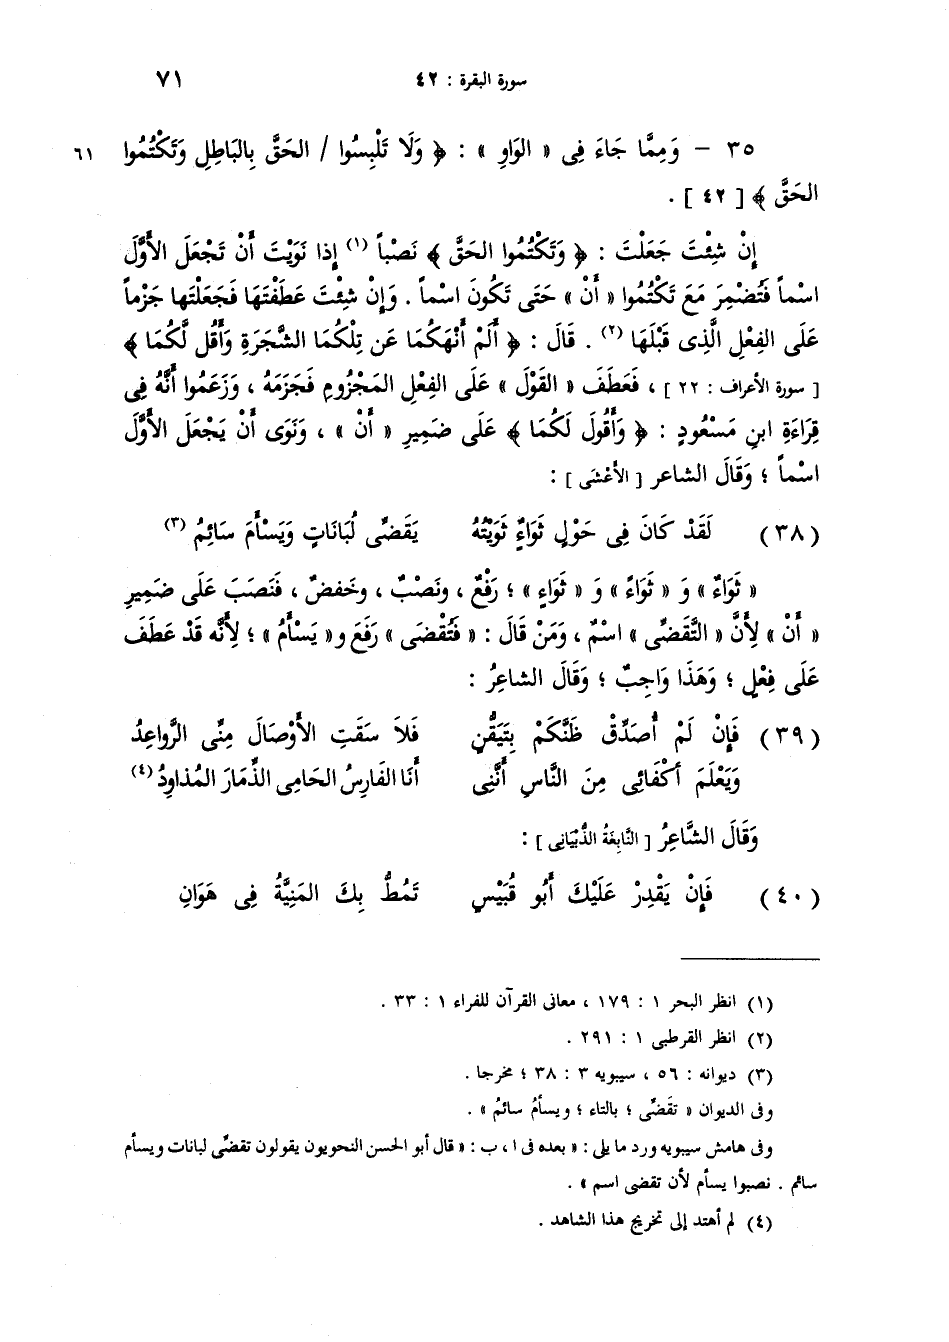 سورة البقرة : ٤٢ ٧١
٣٥ – وَمِمَّا جَاءَ فِى « الوَاوِ » : ﴿ وَلَا تَلْبِسُوا / الحَقَّ بِالبَاطِلِ وَتَكْتُمُوا ٦١
الحَقَّ ﴾ [ ٤٢ ] .
إِنْ شِئْتَ جَعَلْتَ : ﴿ وَتَكْتُمُوا الحَقَّ ﴾ نَصْباً (١) إِذا نَوَيْتَ أَنْ تَجْعَلَ الأَوَّلَ
اسْماً فَتُضْمِرَ مَعَ تَكْتُمُوا « أَنْ » حَتَى تَكُونَ اسْماً . وَإِنْ شِئْتَ عَطَفْتَهَا فَجَعَلْتَها جَزْماً
عَلَى الفِعْلِ الَّذِى قَبْلَهَا (٢) . قَالَ : ﴿ أَلَمْ أَنْهَكُمَا عَن تِلْكُمَا الشَّجَرَةِ وَأَقُل لَّكُمَا ﴾
[ سورة الأعراف : ٢٢ ] ، فَعَطَفَ « القَوْلَ » عَلَى الفِعْلِ المَجْزُومِ فَجَزَمَهُ ، وَزَعَمُوا أَنَّهُ فِى
قِرَاءَةِ ابنِ مَسْعُودٍ : ﴿ وَأَقُولَ لَكُمَا ﴾ عَلَى ضَمِيرِ « أَنْ » ، وَنَوَى أَنْ يَجْعَلَ الأَوَّلَ
اسْماً ؛ وَقَالَ الشاعر [ الأَعْشَى ] :
(٣٨) لَقَدْ كَانَ فِى حَوْلٍ ثَوَاءٍ ثَوَيْتُهُ يَقَضِّى لُبَانَاتٍ وَيَسْأَمَ سَائِمُ (٣)
« ثَوَاءٌ » وَ « ثَوَاءً » وَ « ثَوَاءٍ » ؛ رَفْعٌ ، ونَصْبٌ ، وخَفضٌ ، فَنَصَبَ عَلَى ضَمِيرِ
« أَنْ » لِأَنَّ « التَّقَضِّى » اسْمٌ ، وَمَنْ قَالَ : « فَتُقْضَى » رَفَعَ و« يَسْأَمُ » ؛ لِأَنَّه قَدْ عَطَفَ
عَلَى فِعْلٍ ؛ وَهَذَا وَاجِبٌ ؛ وَقَالَ الشاعِرُ :
(٣٩) فَإِنْ لَمْ أُصَدِّقْ ظَنَّكَمْ بِتَيَقُّنٍ فَلاَ سَقَتِ الأَوْصَالَ مِنِّى الرَّواعِدُ
وَيَعْلَمَ أكْفَائِى مِنَ النَّاسِ أَنَّنِى أَنَا الفَارِسُ الحَامِى الذِّمَارَ المُذاوِدُ (٤)
وَقَالَ الشَّاعِرُ [ النَّابِغَةُ الذُّبْيَانِى ] :
(٤٠) فَإِنْ يَقْدِرْ عَلَيْكَ أَبُو قُبَيْسٍ تَمُطُّ بِكَ المَنِيَّةُ فِى هَوَانِ
(١) انظر البحر ١ : ١٧٩ ، معانى القرآن للفراء ١ : ٣٣ .
(٢) انظر القرطبى ١ : ٢٩١ .
(٣) ديوانه : ٥٦ ، سيبويه ٣ : ٣٨ ؛ مخرجا .
وفى الديوان « تقَضِّى ؛ بالتاء ؛ ويسأمُ سائمُ » .
وفى هامش سيبويه ورد ما يلى : « بعده فى ا ، ب : « قال أبو الحسن النحويون يقولون تقضِّى لبانات ويسأم
سائم . نصبوا يسأم لأن تقضى اسم » .
(٤) لم أهتد إلى تخريج هذا الشاهد .